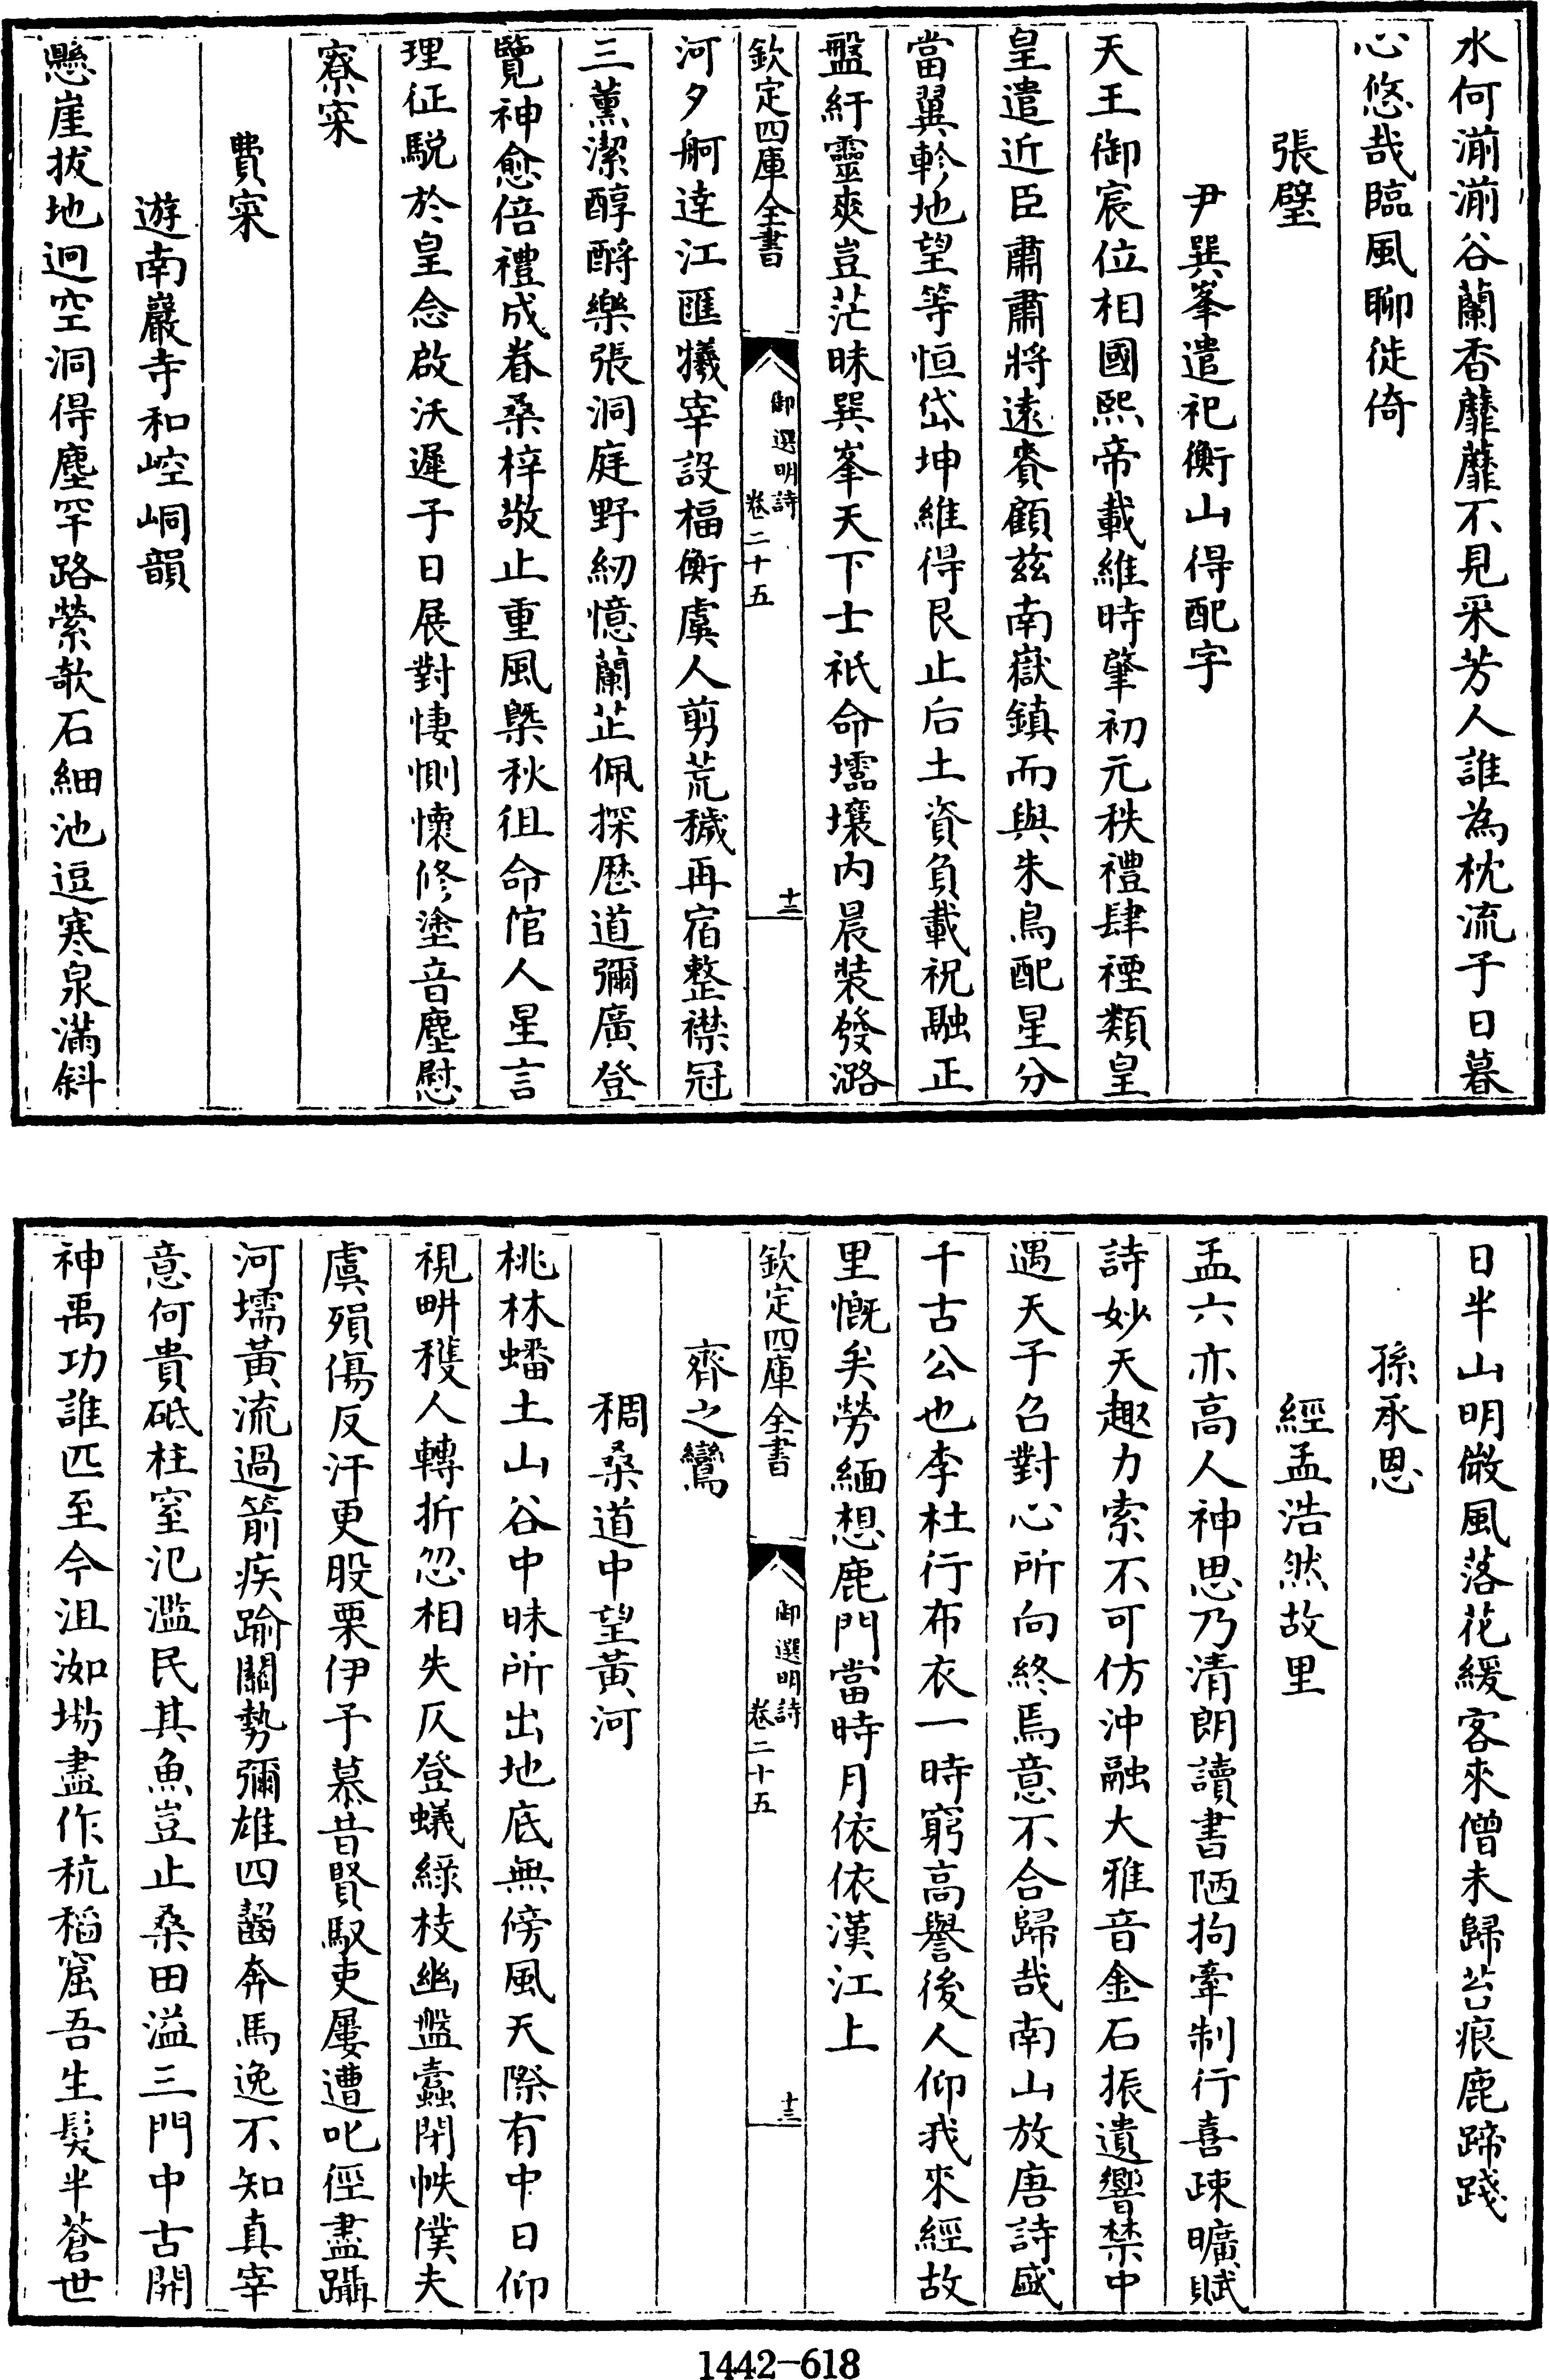 水何湔湔谷蘭香蘼蘼不見采芳人誰為枕流子日暮
心悠哉臨風聊徙倚
張璧
尹巽峯遣祀衡山得配字
天王御宸位相國熙帝載維時肇初元秩禮肆禋類皇
皇遣近臣肅肅將遠賚顧兹南嶽鎮而與朱鳥配星分
當翼軫地望等恒岱坤維得艮止后土資負載祝融正
盤紆靈爽豈茫昧巽峯天下士祇命壖壤内晨裝發潞
欽定四庫全書
御選明詩
卷二十五
十三
河夕舸達江匯犧宰設楅衡虞人剪荒穢再宿整襟冠
三薰潔醇酹樂張洞庭野紉憶蘭芷佩探歷道彌廣登
覽神愈倍禮成眷桑梓敬止重風槩秋徂命倌人星言
理征駾於皇念啟沃遲子日展對悽惻懷修塗音塵慰
寮寀
費寀
遊南巖寺和崆峒韻
懸崖拔地迥空洞得塵罕路縈欹石細池逗寒泉滿斜
日半山明微風落花緩客來僧未歸苔痕鹿蹄踐
孫承恩
經孟浩然故里
孟六亦高人神思乃清朗讀書陋拘牽制行喜疎曠賦
詩妙天趣力索不可仿沖融大雅音金石振遺響禁中
遇天子召對心所向終焉意不合歸哉南山放唐詩盛
千古公也李杜行布衣一時窮高譽後人仰我來經故
里慨矣勞緬想鹿門當時月依依漢江上
欽定四庫全書
御選明詩
卷二十五
十三
齊之鸞
稠桑道中望黃河
桃林蟠土山谷中昧所出地底無傍風天際有中日仰
視畊穫人轉折忽相失仄登蟻緣枝幽盤蠧閉帙僕夫
虞殞傷反汗更股栗伊予慕昔賢馭吏屢遭叱徑盡躡
河壖黃流過箭疾踰關勢彌雄四齧奔馬逸不知真宰
意何貴砥柱窒氾濫民其魚豈止桑田溢三門中古開
神禹功誰匹至今沮洳場盡作秔稻窟吾生髮半蒼世
1442-618